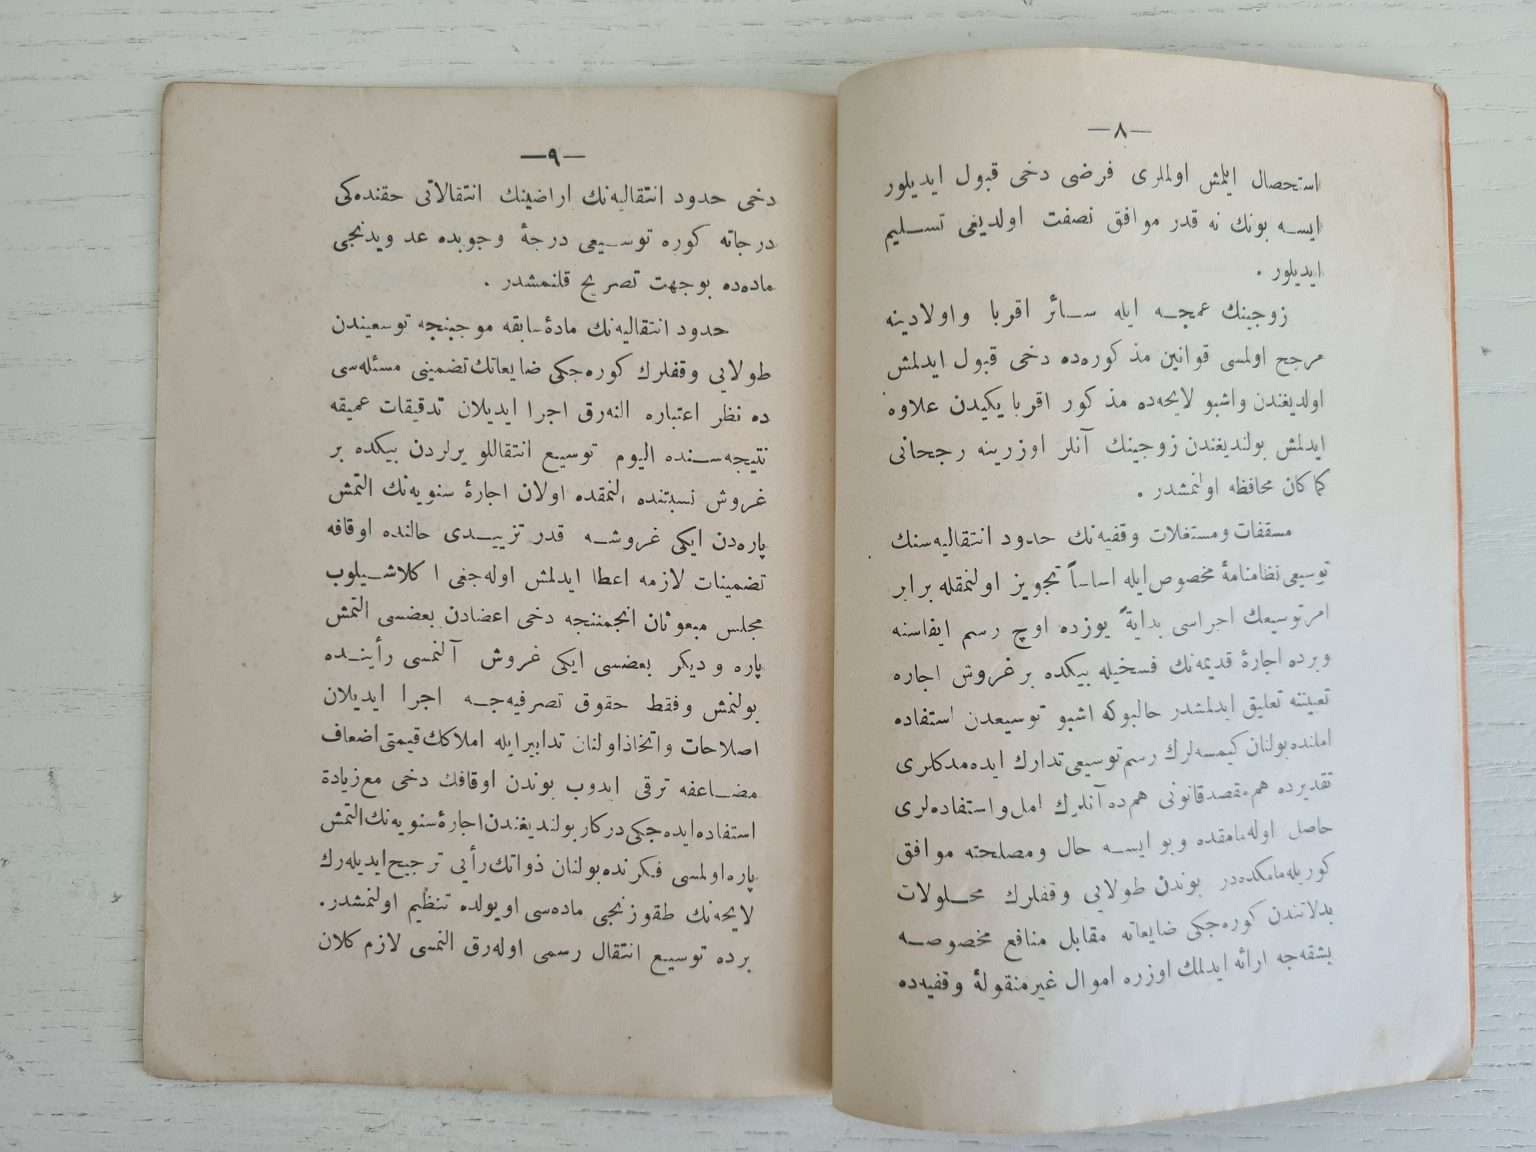 —٨—
استحصال ايلمش اولملرى فرضى دخى قبول ايديلور
ايسه بونك نه قدر موافق نصفت اولديغى تسليم
ايديلور .
زوجينك عمجه ايله سائر اقربا و اولادينه
مرجح اولمسى قوانين مذكوره‌ده دخى قبول ايدلمش
اولديغندن واشبو لايحه‌ده مذكور اقربا يكيدن علاوه
ايدلمش بولنديغندن زوجينك آنلر اوزرينه رجحانى
كماكان محافظه اولنمشدر .
مسقفات ومستغلات وقفيه‌نك حدود انتقاليه‌سنك
توسيعى نظامنامهٔ مخصوص ايله اساساً تجويز اولنمقله برابر
امر توسيعك اجراسى بدايةً يوزده اوچ رسم ايفاسنه
وبرده اجارهٔ قديمه‌نك فسخيله بيكده بر غروش اجاره
تعييننه تعليق ايدلمشدر حالبوكه اشبو توسيعدن استفاده
املنده بولنان كيمسه‌لرك رسم توسيعى تدارك ايده‌مدكلرى
تقديرده هم مقصد قانونى هم‌ده آنلرك امل و استفاده‌لرى
حاصل اوله‌مامقده وبو ايسه حال ومصلحته موافق
كوريله‌مامكده‌در بوندن طولايى وقفلرك محلولات
بدلاتندن كوره‌جكى ضايعاته مقابل منافع مخصوصه
بشقه‌جه ارائه ايدلمك اوزره اموال غيرمنقولهٔ وقفيه‌ده
—٩—
دخى حدود انتقاليه‌نك اراضينك انتقالاتى حقنده‌كى
درجاته كوره توسيعى درجهٔ وجوبده عد ويدنجى
ماده‌ده بوجهت تصريح قلنمشدر .
حدود انتقاليه‌نك مادهٔ سابقه موجبنجه توسعيندن
طولايى وقفلرك كوره‌جكى ضايعاتك تضمينى مسئله‌سى
ده نظر اعتباره النه‌رق اجرا ايديلان تدقيقات عميقه
نتيجه‌سنده اليوم توسيع انتقاللو يرلردن بيكده بر
غروش نسبتنده النمقده اولان اجارهٔ سنويه‌نك التمش
پاره‌دن ايكى غروشه قدر تزييدى حالنده اوقافه
تضمينات لازمه اعطا ايدلمش اوله‌جغى اكلاشيلوب
مجلس مبعوثان انجمننجه دخى اعضادن بعضسى التمش
پاره و ديكر بعضسى ايكى غروش آلنمسى رأينده
بولنمش وفقط حقوق تصرفيه‌جه اجرا ايديلان
اصلاحات واتخاذ اولنان تدابير ايله املاكك قيمتى اضعاف
مضاعفه ترقى ايدوب بوندن اوقافك دخى مع زيادة
استفاده ايده‌جكى دركار بولنديغندن اجارهٔ سنويه‌نك التمش
پاره اولمسى فكرنده بولنان ذواتك رأيى ترجيح ايديله‌رك
لايحه‌نك طقوزنجى ماده‌سى اويولده تنظيم اولنمشدر.
برده توسيع انتقال رسمى اوله‌رق النمسى لازم كلان